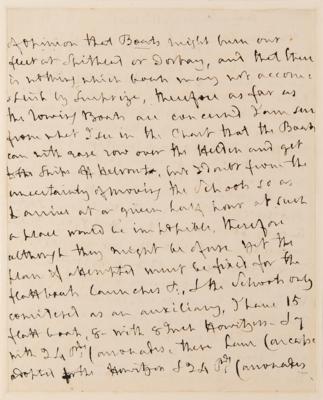 opinion that Boats might burn our
fleet at Spithead or Torbay, and that there
is nothing which boats may not accom
plish by Surprize, therefore as far as
the rowing Boats are concerned I am sure
from what I see in the Chart that the Boats
can with ease row over the Helder and get
to the Ships off Helvoet, but I doubt from the
uncertainty of moving the Schoots so as
to arrive at a given half hour at such
a place would be impossible, therefore
although they might be of use yet the
plan if attempted must be fixed for the
flatt boats Launches &c, & the Schoots only
considered as an auxiliary, I have 15
flatt boats, 8 with 8 Inch Howitzers & 7
with 24 Pr. Carronades, these
adopted to the Howitzers & 24 Pr. Carronades